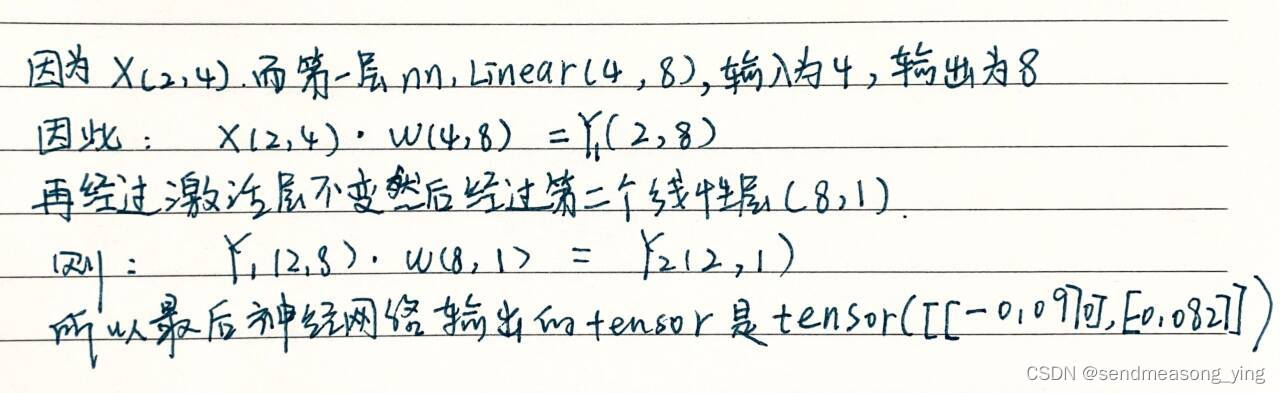 因为 X(2,4).而第一层 nn.Linear(4,8),输入为4,输出为8
因此: X(2,4)·W(4,8) =Y₁(2,8)
再经过激活层不变然后经过第二个线性层(8,1).
则: Y₁(2,8)·W(8,1) = Y₂(2,1)
所以最后神经网络输出的tensor是tensor([[-0.0970],[0.082]])
CSDN @sendmeasong_ying